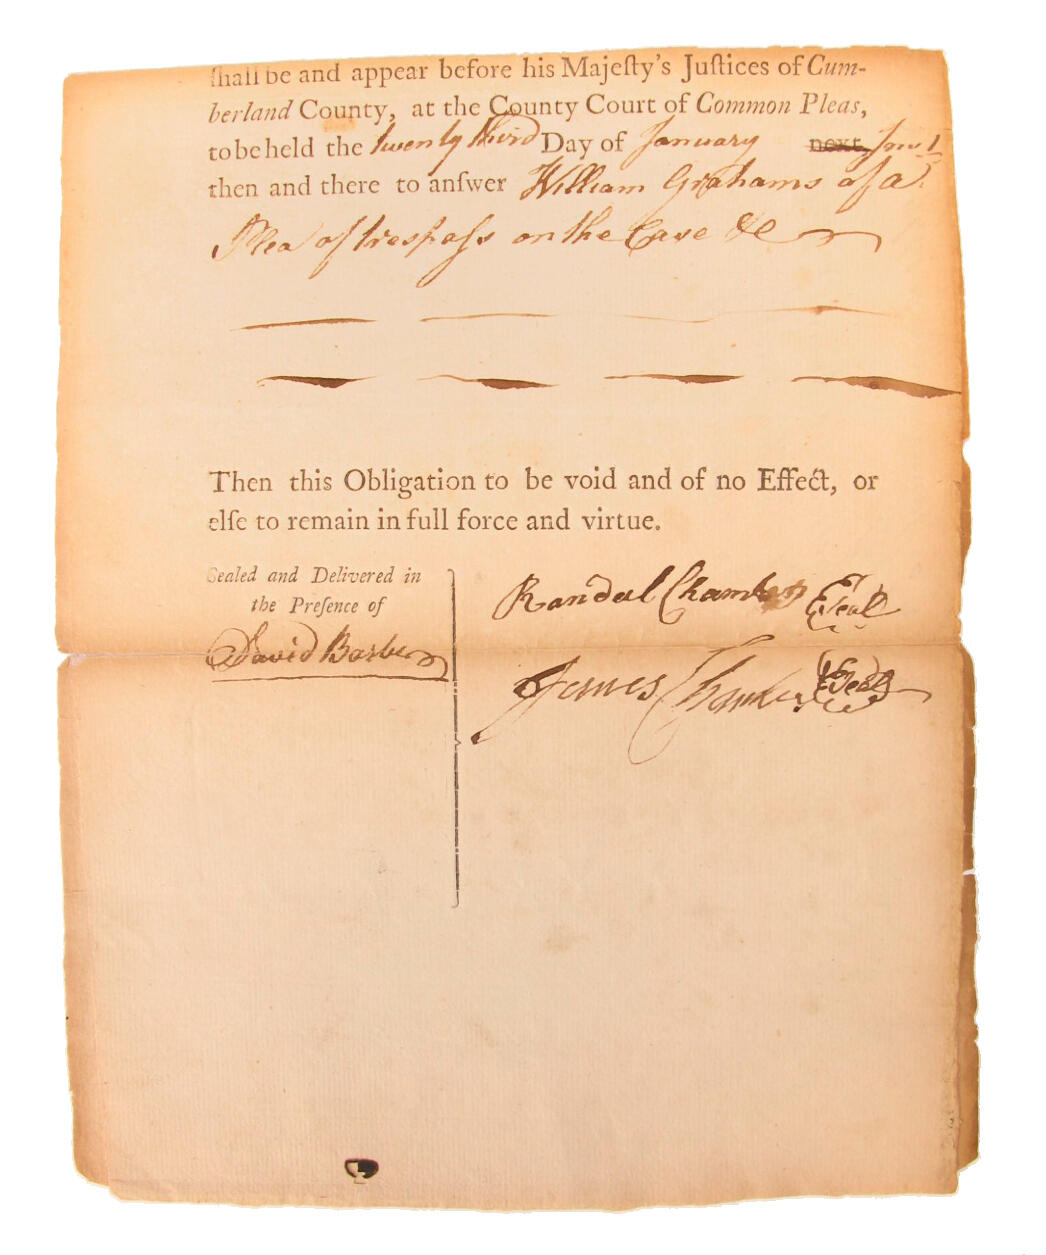 ſhall be and appear before his Majeſty's Juſtices of Cum-
berland County, at the County Court of Common Pleas,
to be held the twenty third Day of January next Inst
then and there to anſwer William Grahams of a
Plea of treſpaſs on the Case &c
Then this Obligation to be void and of no Effect, or
elſe to remain in full force and virtue.
Sealed and Delivered in
the Preſence of
Randul Chambers Seal
David Barber
James Chambers Seal